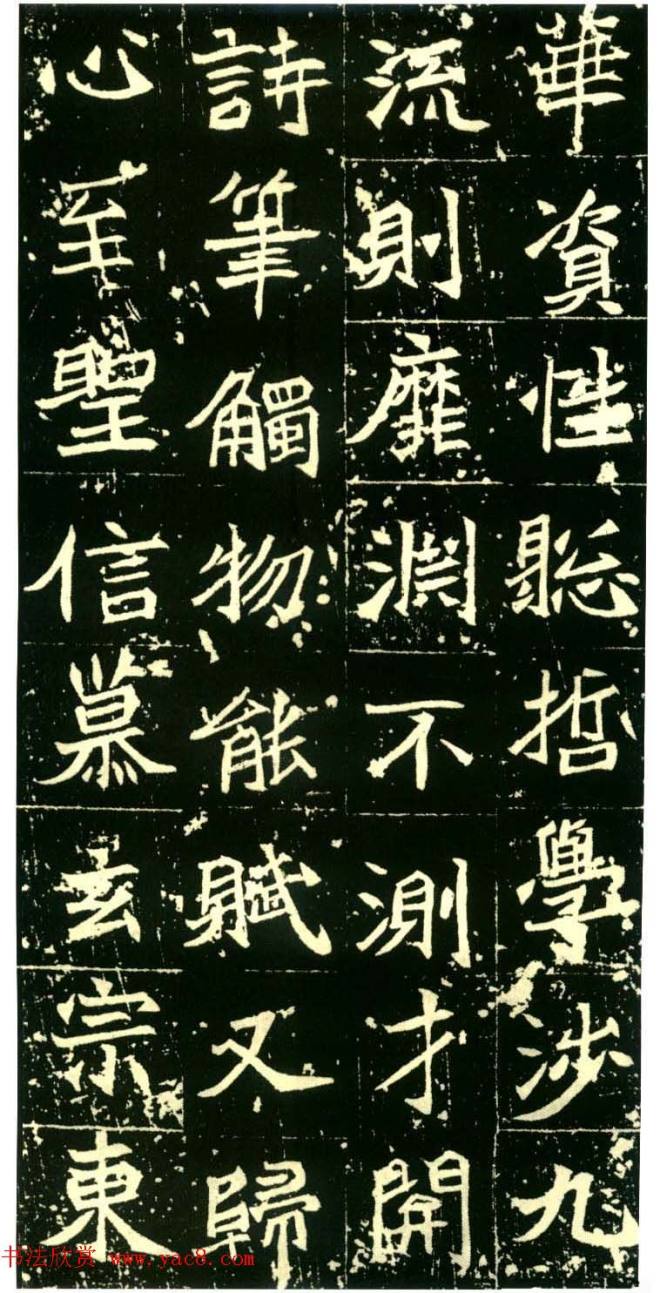 華資性聡哲學涉九
流則靡淵不測才開
詩筆觸物能賦又歸
心至聖信慕玄宗東
书法欣赏 www.yac8.com